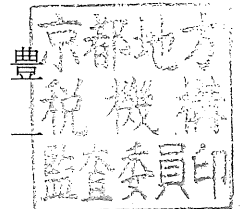 豊一
京都地方
税機構
監査委員印